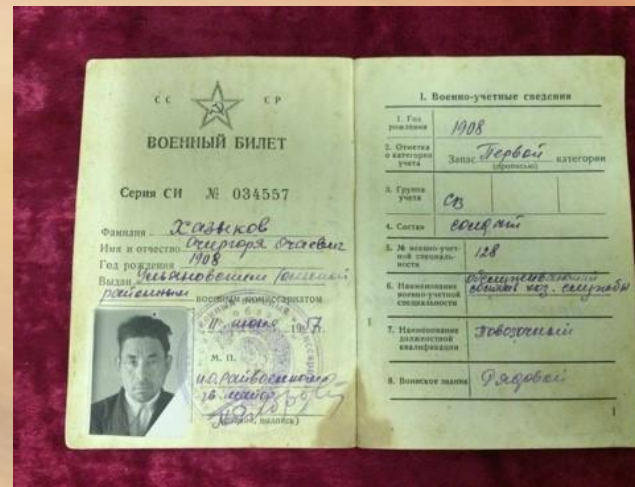 СС СР
ВОЕННЫЙ БИЛЕТ
Серия СИ № 034557
Фамилия Хазыков
Имя и отчество Очиргоря Очаевич
Год рождения 1908
Выдан Ульяновским
районным военным комиссариатом
11 июня 1957 г.
М. П.
и.о. райвоенкома
гв. майор
подпись)
I. Военно-учетные сведения
1. Год рождения 1908
2. Отметка о категории учета Запас Первой категории
(прописью)
3. Группа учета СВ
4. Состав солдат
5. № военно-учетной специальности 128
6. Наименование военно-учетной специальности обслуживающий состав хоз. службы
7. Наименование должностной квалификации повозочный
8. Воинское звание Рядовой
1